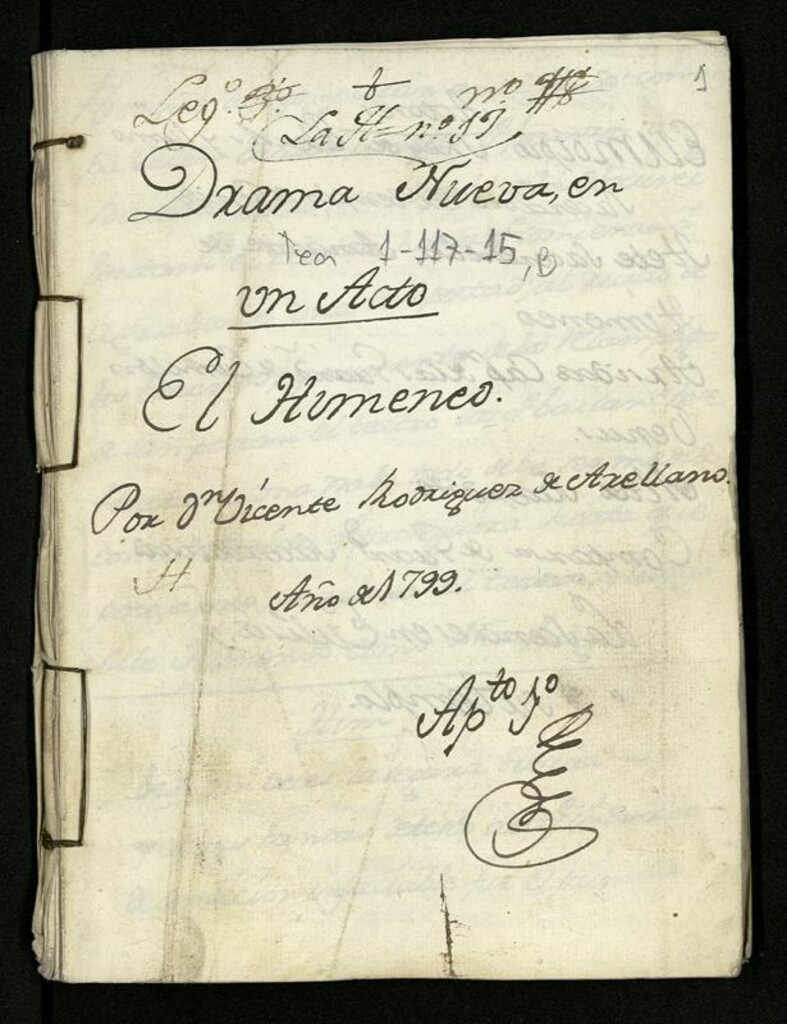 1
Leg.º nº
La H nº 19
Drama Nueva, en
Tea 1-117-15, B
un Acto
El Himeneo.
Por Dn Vicente Rodriguez de Arellano.
H
Año de 1799.
Apto 1º